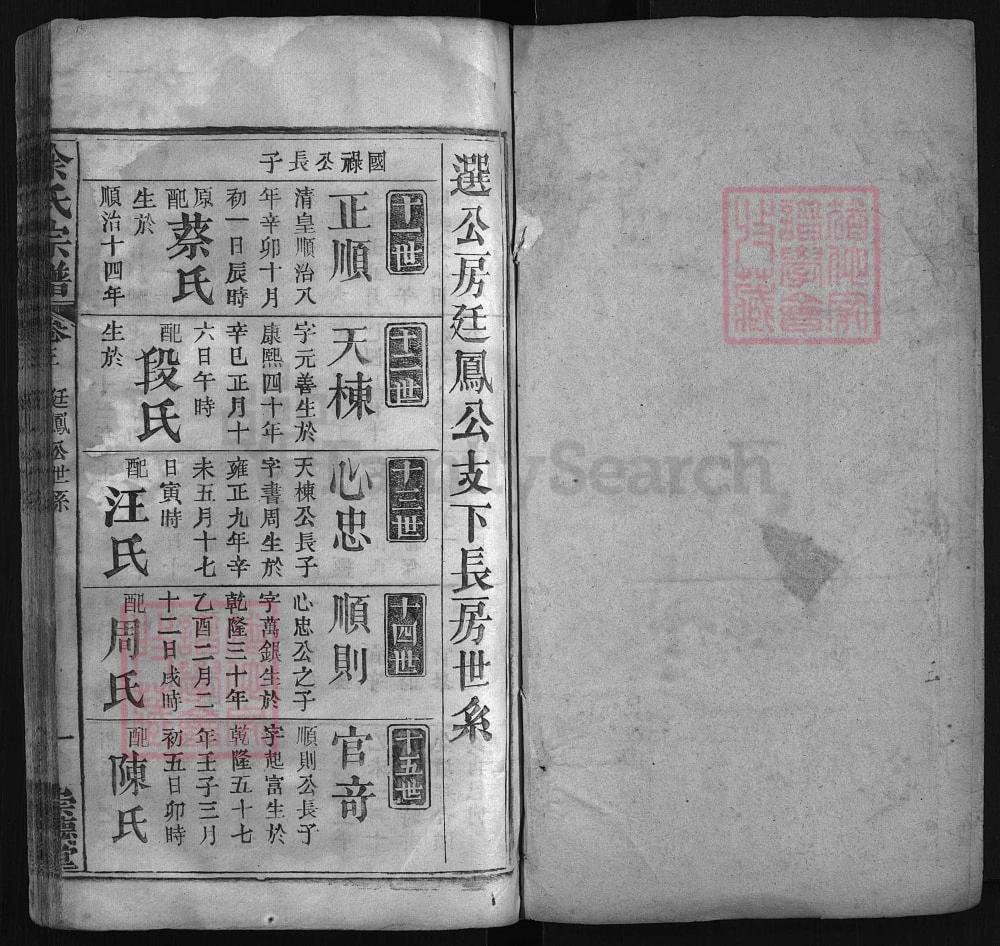 選公房廷鳳公支下長房世系
國祿公長子
十一世
正順
清皇順治八
年辛卯十月
初一日辰時
原配蔡氏
生於
順治十四年
十二世
天棟
字元善生於
康熙四十年
辛巳正月十
六日午時
配段氏
生於
十三世
心忠
天棟公長子
字書周生於
雍正九年辛
未五月十七
日寅時
配汪氏
十四世
順則
心忠公之子
字萬銀生於
乾隆三十年
乙酉二月二
十二日戌時
配周氏
十五世
官奇
順則公長子
字起富生於
乾隆五十七
年壬子三月
初五日卯時
配陳氏
余氏宗譜
卷三
廷鳳公世系
一
崇德堂
FamilySearch